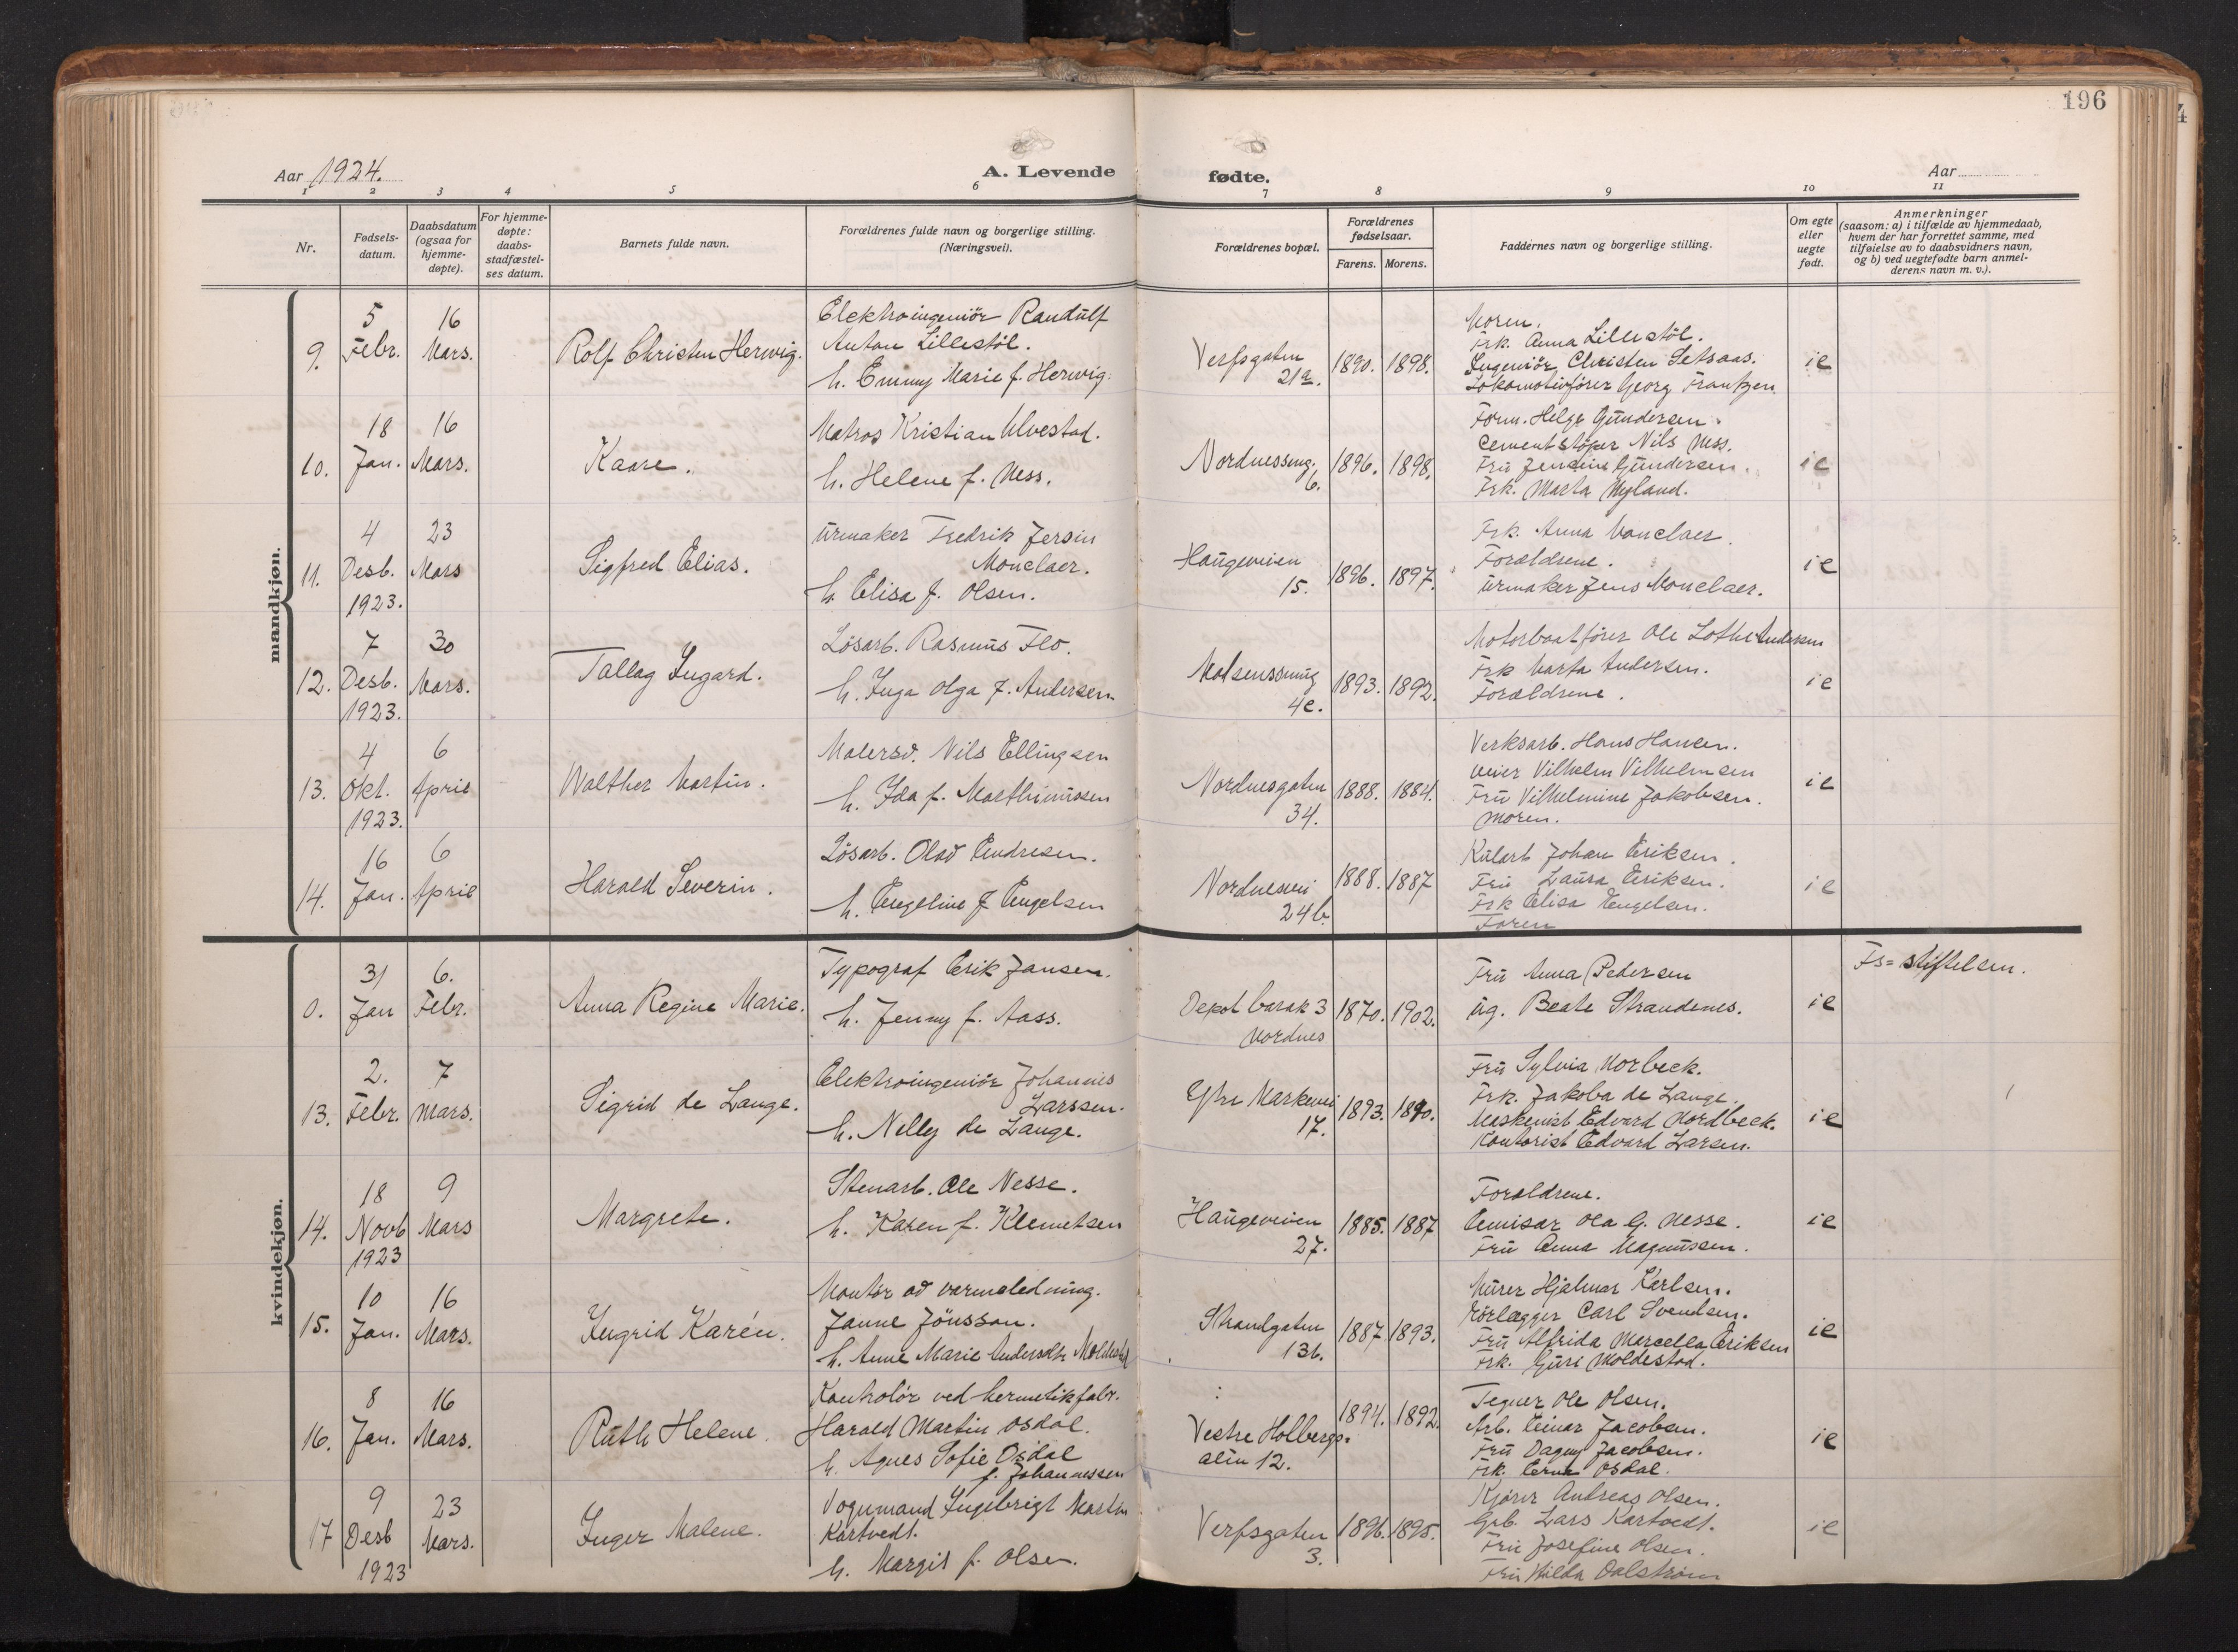 196
Aar 1924.
A. Levende
fødte.
Aar
1 2 3 4 5 6 7 8 9 10 11
Nr.
Fødsels-
datum.
Daabsdatum
(ogsaa for
hjemme-
døpte).
For hjemme-
døpte:
daabs-
stadfæstel-
ses datum.
Barnets fulde navn.
Forældrenes fulde navn og borgerlige stilling.
(Næringsvei).
Forældrenes bopæl.
Forældrenes
fødselsaar.
Farens. Morens.
Faddernes navn og borgerlige stilling.
Om egte
eller
uegte
født.
Anmerkninger
(saasom: a) i tilfælde av hjemmedaab,
hvem der har forrettet samme, med
tilføielse av to daabsvidners navn,
og b) ved uegtefødte barn anmel-
derens navn m. v.).
mandkjøn.
9.
5
Febr.
16
Mars.
Rolf Christen Herwig.
Elektroingeniör Randulf
Anton Lillestöl.
h. Emmy Marie f. Herwig.
Verfsgaten
21a.
1890. 1898.
Moren.
Frk. Anna Lillestöl.
Ingeniör Christen Setsaas.
Lokomotivförer Georg Frantzen.
ie
10.
18
Jan.
16
Mars.
Kaare.
Matros Kristian Ulvestad.
h. Helene f. Ness.
Nordnessmg.
6.
1896. 1898.
Form. Helge Gundersen.
Cementstöper Nils Ness.
Fru Jensine Gundersen.
Frk. Marta Nyland.
ie
11.
4
Desb.
1923.
23
Mars
Sigfred Elias.
Urmaker Fredrik Jersin
Monclaer.
h. Elisa f. Olsen.
Haugeveien
15.
1896. 1897.
Frk. Anna Monclaer.
Forældrene.
Urmaker Jens Monclaer.
ie
12.
7
Desb.
1923.
30
Mars.
Tallag Ingard.
Lösarb. Rasmus Flo.
h. Inga Olga f. Andersen.
4c.
1893. 1892.
Motorbaatförer Ole Lothe Andersen
Frk Marta Andersen.
Forældrene.
ie
13.
4
Okt.
1923.
6
April
Walther Martin.
Malersv. Nils Ellingsen
h. Ida f. Matthiussen
Nordnesgaten
34.
1888. 1884.
Verksarb. Hans Hansen.
Veier Vilhelm Vilhelmsen
Fru Vilhelmine Jakobsen.
Moren.
ie
14.
16
Jan.
6
April
Harald Severin.
Lösarb. Olav Endresen.
h. Engeline f Engelsen
Nordnesvei
24b
1888. 1887
Kularb Johan Eriksen.
Fru Laura Eriksen.
Frk Elisa Engelsen.
Faren
ie
kvindekjøn.
0.
31
Jan
6.
Febr.
Anna Regine Marie.
Typograf Erik Jansen.
h. Jenny f. Aass.
Depot barak 3
Nordnes
1870. 1902.
Fru Anna Pedersen
ug. Beate Strandenes.
ie
Fs=stiftelsen.
13.
2.
Febr.
7
Mars.
Sigrid de Lange.
Elektroingeniör Johannes
Larssen.
h. Nelly de Lange.
Øfre Markevei
17.
1893. 1890.
Fru Sylvia Norbeck.
Frk. Jakoba de Lange.
Maskinist Edvard Nordbeck.
Kontorist Edvard Larsen.
ie
14.
18
Novb
1923
9
Mars
Margrete.
Stenarb. Ole Nesse.
h. Karen f. Klemetsen
Haugeveien
27.
1885. 1887
Forældrene.
Emisær Ola G. Nesse.
Fru Anna Magnussen.
ie
15.
10
Jan.
16
Mars.
Ingrid Karén.
Montör av varmeledning.
Janne Jönsson.
h. Anne Marie Andersdtr Moldestad
Strandgaten
136.
1887. 1893.
Murer Hjalmar Karlsen.
Rörlægger Carl Svendsen.
Fru Alfrida Marcella Eriksen
Frk. Guri Moldestad.
ie
16.
8
Jan.
16
Mars.
Ruth Helene.
Kontrolör ved hermetikfabr.
Harald Martin Osdal.
h. Agnes Sofie Osdal
f. Johannessen
Vestre Holbergs-
alm 12.
1894. 1892.
Tegner Ole Olsen.
Arb. Einar Jacobsen.
Fru Dagny Jacobsen.
Frk. Erna Osdal.
ie
17
9
Desb
1923
23
Mars.
Inger Malene.
Vognmand Ingebrigt Martin
Kartvedt.
h. Margit f. Olsen.
Verfsgaten
3.
1896. 1895.
Kjörer Andreas Olsen.
Grb. Lars Kartvedt.
Fru Josefine Olsen.
Fru Hilda Dalström
ie